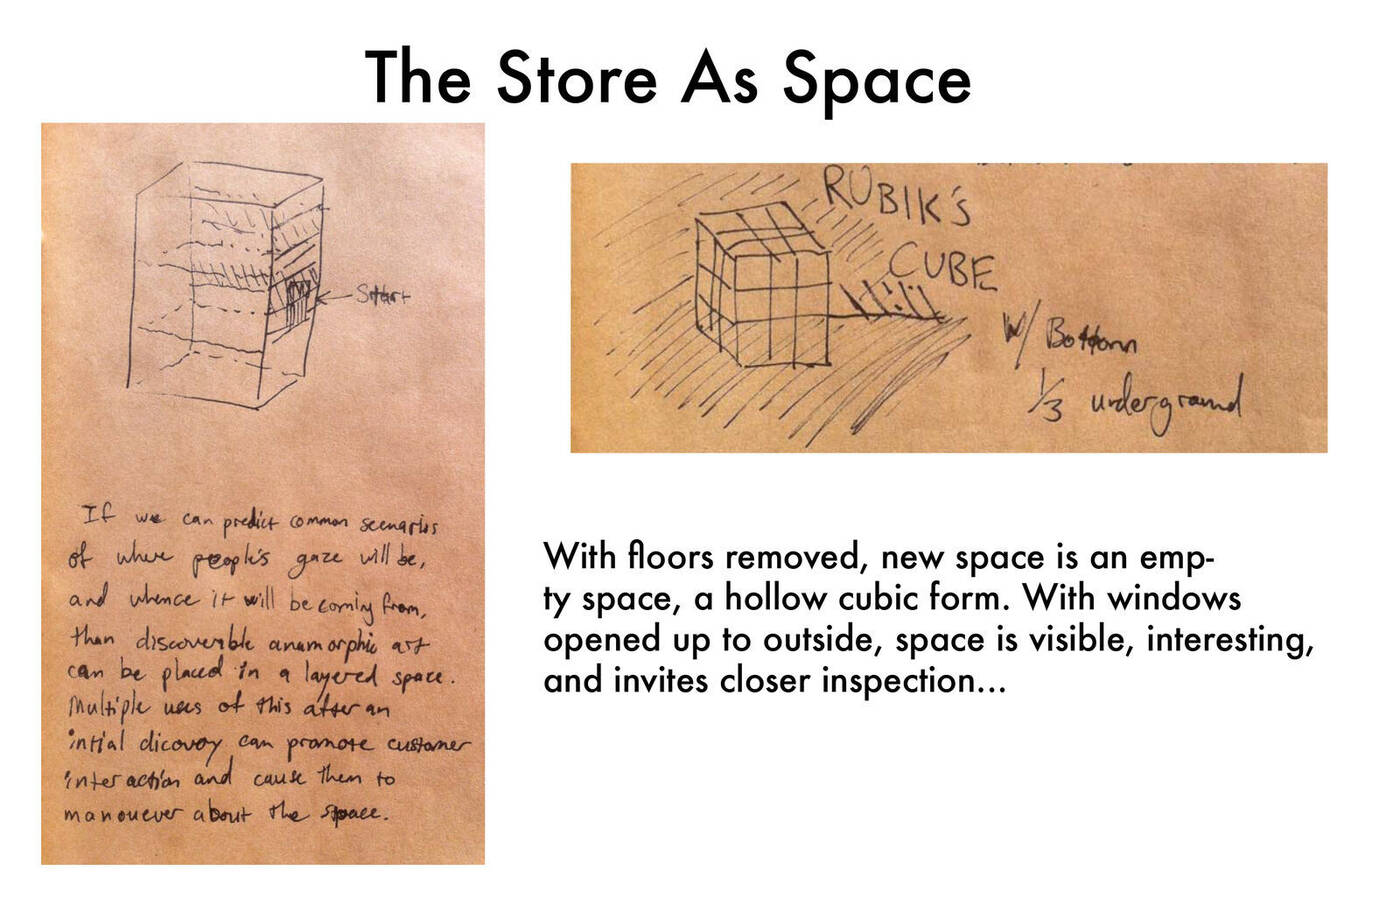 The Store As Space
Start
If we can predict common scenarios
of where people's gaze will be,
and whence it will be coming from,
than discoverable anamorphic art
can be placed in a layered space.
Multiple uses of this after an
intial dicovoy can promote customer
interaction and cause them to
manouever about the space.
RUBIK'S
CUBE
W/ Bottom
1/3 underground
With floors removed, new space is an emp-
ty space, a hollow cubic form. With windows
opened up to outside, space is visible, interesting,
and invites closer inspection...